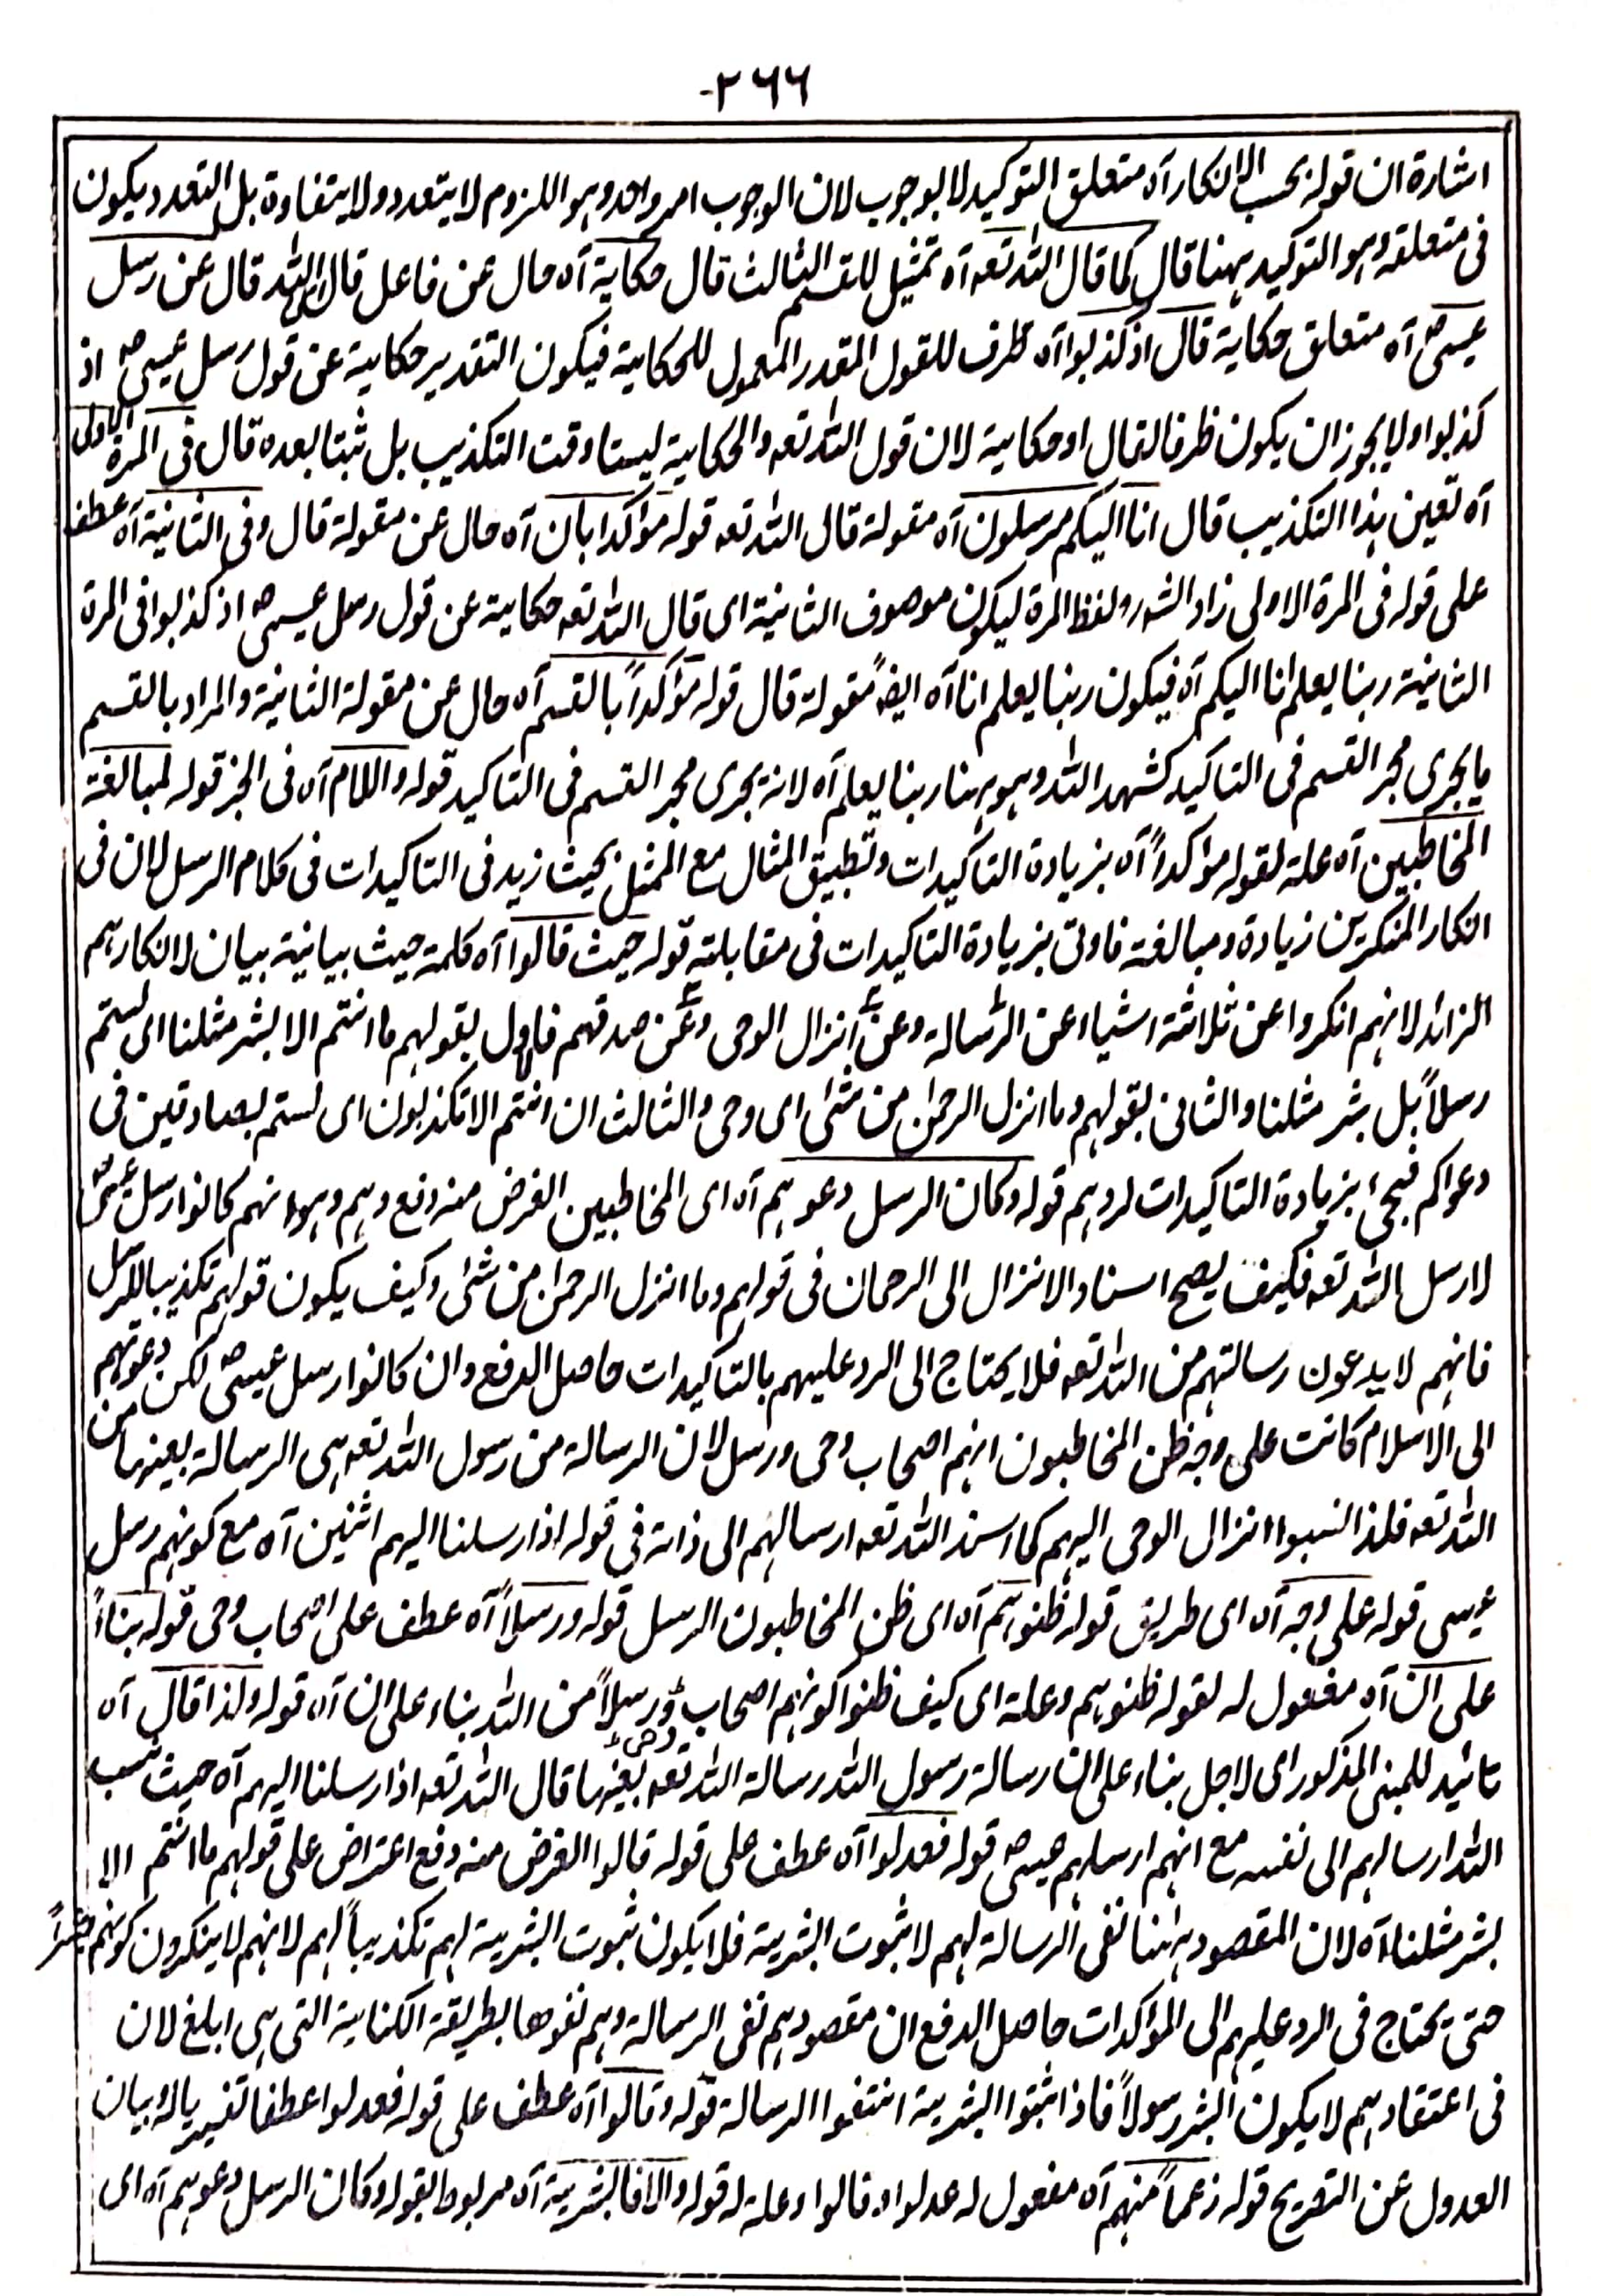 ۲۶۶-
اشارة ان قوله بحسب الانكار آه متعلق التوكيد لا بوجوب لان الوجوب امر واحد وهو اللزوم لا يتعدد ولا يتفاوة بل التعدد يكون
فى متعلقه وهو التوكيد ههنا قال كما قال الله تعه آه تمثيل للقسم الثالث قال حكاية آه حال عن فاعل قال الله قال عن رسل
عيسى ص آه متعلق حكاية قال اذ كذبوا آه ظرف للقول المقدر المعمول للحكاية فيكون التقدير حكاية عن قول رسل عيسى ص اذ
كذبوا ولا يجوز ان يكون ظرفا لقال او حكاية لان قول الله تعه والحكاية ليستا وقت التكذيب بل ثبتا بعده قال فى المرة الاولى
آه تعين هذا التكذيب قال انا اليكم مرسلون آه مقولة قال الله تعه قوله مؤكدا بان آه حال عن مقولة قال وفى الثانية آه عطف
على قوله فى المرة الاولى زاد الشه ر ولفظ المرة ليكون موصوف الثانية اى قال الله تعه حكاية عن قول رسل عيسى ص اذ كذبوا فى المرة
الثانية ربنا يعلم انا اليكم آه فيكون ربنا يعلم انا آه ايضًا مقولة قال قوله مؤكداً بالقسم آه حال عن مقولة الثانية والمراد بالقسم
ما يجرى مجر القسم فى التاكيد كشهد الله وهو ههنا ربنا يعلم آه لانه يجرى مجر القسم فى التاكيد قوله واللام آه فى الخبر قوله لمبالغة
المخاطبين آه علة لقوله مؤكداً آه بزيادة التاكيدات وتطبيق المثال مع الممثل بحيث زيد فى التاكيدات فى كلام الرسل لان فى
انكار المنكرين زيادة ومبالغة فاوتى بزيادة التاكيدات فى مقابلته قوله حيث قالوا آه كلمة حيث بيانية بيان لانكارهم
الزائد لانهم انكروا عن ثلاثة اشياء عن الرسالة وعن انزال الوحى وعن صدقهم فالاول بقولهم ما انتم الا بشر مثلنا اى لستم
رسلاً بل بشر مثلنا والثانى بقولهم وما انزل الرحمن من شئ اى وحى والثالث ان انتم الا تكذبون اى لستم بصادقين فى
دعواكم فجئ بزيادة التاكيدات لردهم قوله وكان الرسل دعوهم آه اى المخاطبين الغرض منه دفع وهم وهو انهم كانوا رسل عيسى ص
لا رسل الله تعه فكيف يصح اسناد الانزال الى الرحمان فى قولهم وما انزل الرحمن من شئ وكيف يكون قولهم تكذيبا للرسل
فانهم لا يدعون رسالتهم من الله تعه فلا يحتاج الى الرد عليهم بالتاكيدات حاصل الدفع وان كانوا رسل عيسى ص لكن دعوتهم
الى الاسلام كانت على وجه ظن المخاطبون انهم اصحاب وحى ورسل لان الرسالة من رسول الله تعه هى الرسالة بعينها من
الله تعه فلذا نسبوا انزال الوحى اليهم كما اسند الله تعه ارسالهم الى ذاته فى قوله اذ ارسلنا اليهم اثنين آه مع كونهم رسل
عيسى قوله على وجه آه اى طريق قوله ظنوهم آه اى ظن المخاطبون الرسل قوله ورسلاً آه عطف على اصحاب وحى قوله بناءً
على ان آه مفعول له لقوله ظنوهم وعلة اى كيف ظنوا كونهم اصحاب وحى ورسلاً من الله بناء على ان آه قوله ولذا قال آه
تائيد للمبنى المذكور اى لاجل بناء على ان رسالة رسول الله رسالة الله تعه بعينها قال الله تعه اذ ارسلنا اليهم آه حيث نسب
الله ارسالهم الى نفسه مع انهم ارسلهم عيسى ص قوله فعدلوا آه عطف على قوله قالوا الغرض منه دفع اعتراض على قولهم ما انتم الا
بشر مثلنا آه لان المقصود ههنا نفى الرسالة لهم لا ثبوت البشرية فلا يكون ثبوت البشرية لهم تكذيباً لهم لانهم لا ينكرون كونهم بشراً
حتى يحتاج فى الرد عليهم الى المؤكدات حاصل الدفع ان مقصودهم نفى الرسالة وهم نفوها بطريقة الكناية التى هى ابلغ لان
فى اعتقادهم لا يكون البشر رسولاً فاذا اثبتوا البشرية انتفوا الرسالة قوله وقالوا آه عطف على قوله فعدلوا عطفا تفسيريا له وبيان
العدول عن التصريح قوله زعماً منهم آه مفعول له عدلوا وقالوا وعلة له قوله والا فالبشرية آه مربوط بقوله وكان الرسل دعوهم آه اى